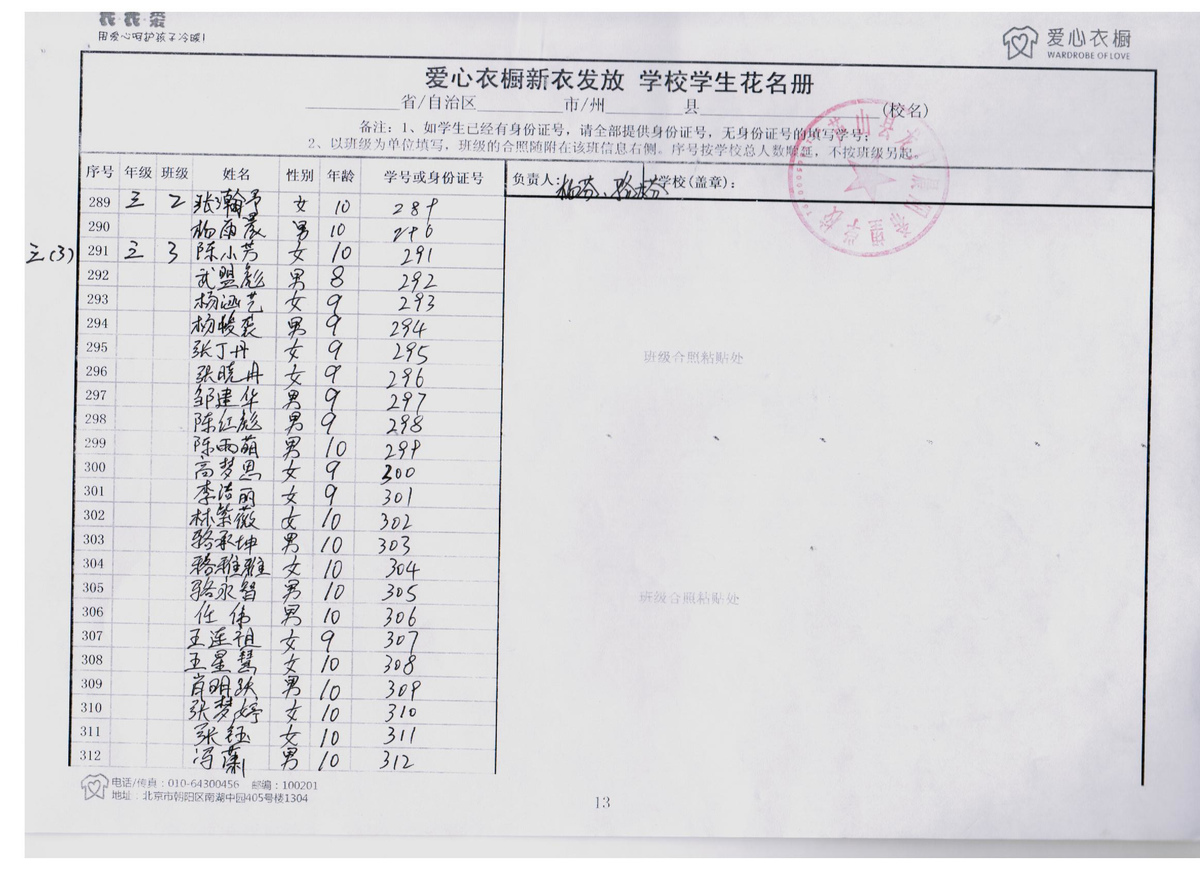 衣衣爱
用爱心呵护孩子冷暖!
爱心衣橱
WARDROBE OF LOVE
爱心衣橱新衣发放 学校学生花名册
省/自治区 市/州 县 (校名)
备注：1、如学生已经有身份证号，请全部提供身份证号，无身份证号的填写学号；
2、以班级为单位填写，班级的合照随附在该班信息右侧。序号按学校总人数顺延，不按班级另起
序号 年级 班级 姓名 性别 年龄 学号或身份证号 负责人: 学校(盖章):
289 三 2 张瀚予 女 10 289
290 杨雨晨 男 10 290
三(3) 291 三 3 陈小芳 女 10 291
292 武盟彪 男 8 292
293 杨涵艺 女 9 293
294 杨骏裘 男 9 294
295 张丁丹 女 9 295
296 张晓丹 女 9 296
297 邹建华 男 9 297
298 陈红彪 男 9 298
299 陈雨萌 男 10 299
300 高梦思 女 9 300
301 李洁丽 女 9 301
302 林紫薇 女 10 302
303 骆承坤 男 10 303
304 骆雅雅 女 10 304
305 骆永智 男 10 305
306 任伟 男 10 306
307 王连祖 女 9 307
308 王星慧 女 10 308
309 肖明跃 男 10 309
310 张梦婷 女 10 310
311 张钰 女 10 311
312 冯萧 男 10 312
班级合照粘贴处
班级合照粘贴处
电话/传真：010-64300456 邮编：100201
地址：北京市朝阳区南湖中园405号楼1304
13